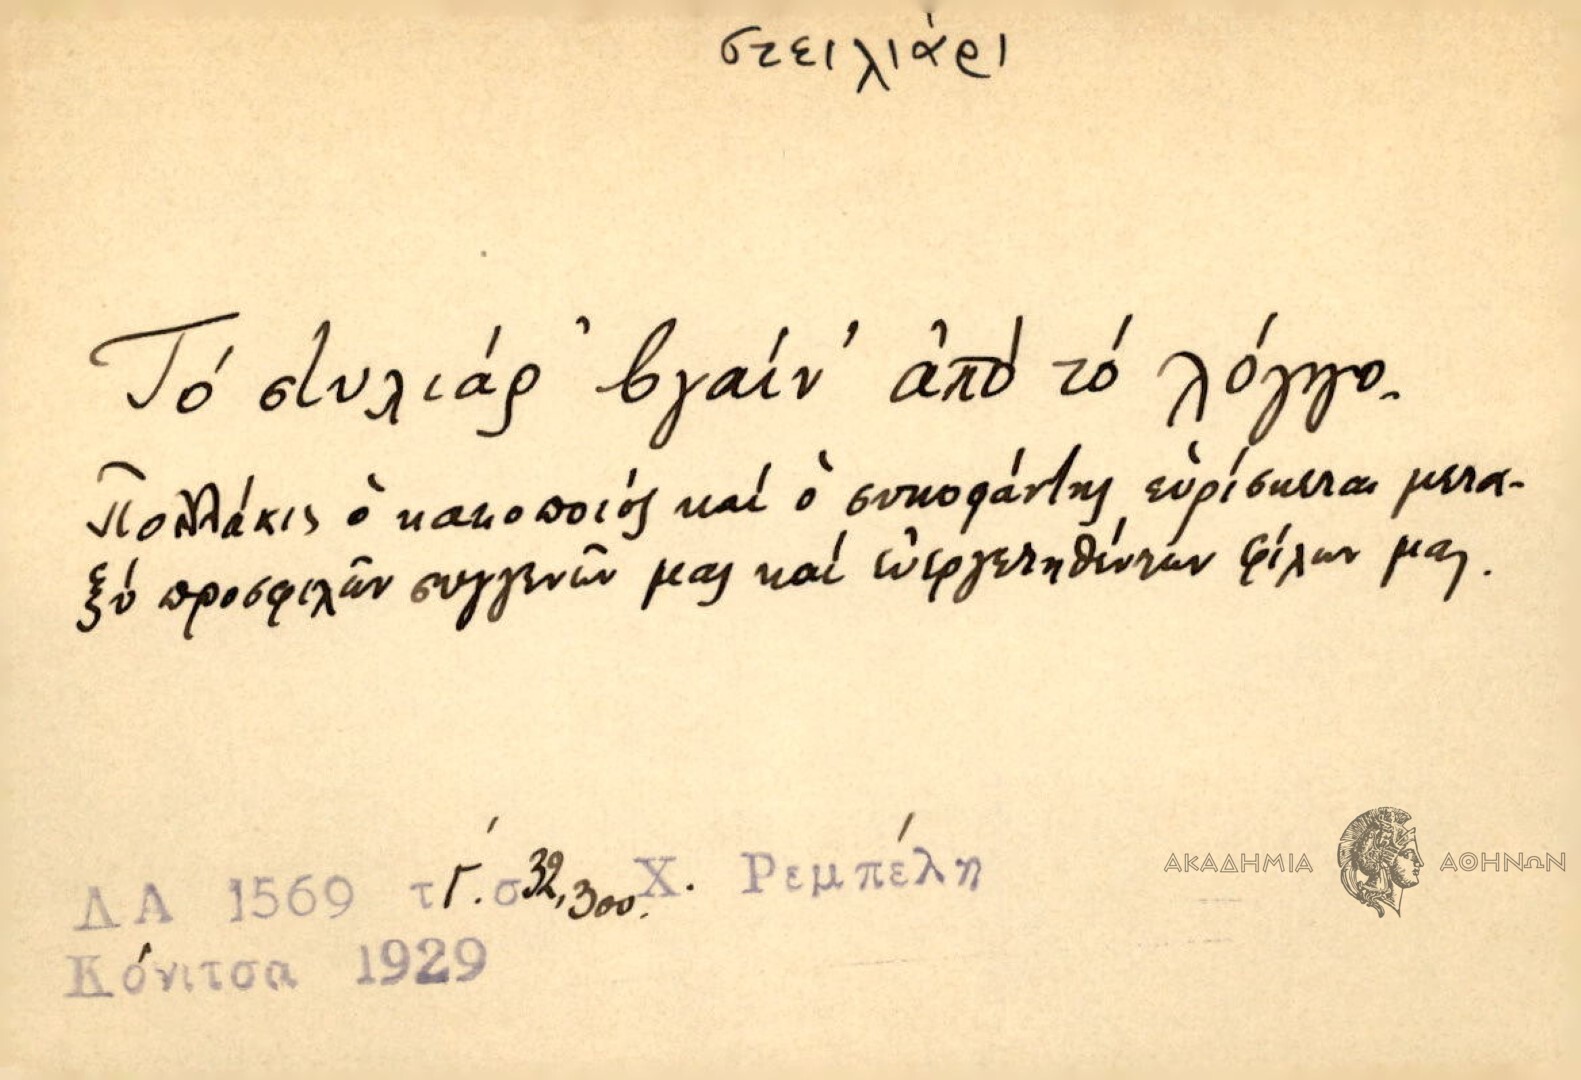 στειλιάρι
Τό στυλιάρ' βγαίν' ἀπό τό λόγγο.
Πολλάκις ὁ κακοποιός καί ὁ συκοφάντης εὑρίσκεται μετα-
ξύ προσφιλῶν συγγενῶν μας καί εὐεργετηθέντων φίλων μας.
ΔΑ 1569 τ Γ́. σ 32, 300. Χ. Ρεμπέλη
Κόνιτσα 1929
ΑΚΑΔΗΜΙΑ ΑΘΗΝΩΝ